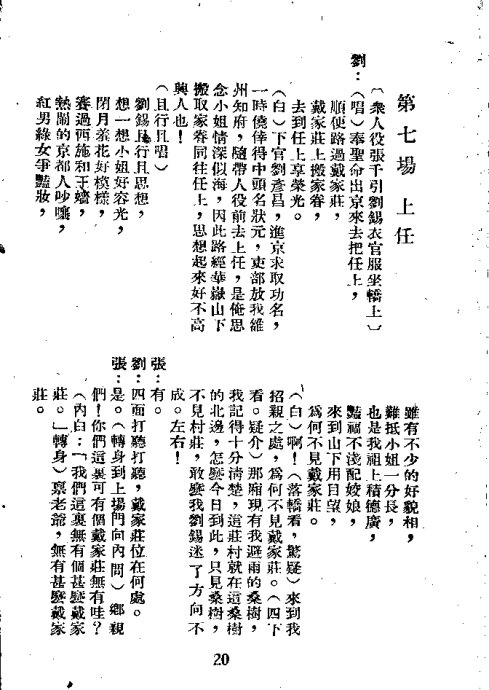 第七場 上任
（衆人役張千引劉錫衣官服坐轎上）
劉：（唱）奉聖命出京來去把任上，
順便路過戴家莊，
戴家莊上搬家眷，
去到任上享榮光。
（白）下官劉彥昌，進京求取功名，
一時僥倖得中頭名狀元，吏部放我維
州知府，隨帶人役前去上任，是俺思
念小姐情深似海，因此路經華嶽山下
搬取家眷同往任上，思想起來好不高
興人也！
（且行且唱）
劉錫且行且思想，
想一想小姐好容光，
閉月羞花好模樣，
賽過西施和王嬙，
熱鬧的京都人吵嚷，
紅男綠女爭豔妝，
雖有不少的好貌相，
難抵小姐一分長，
也是我祖上積德廣，
豔福不淺配姣娘，
來到山下用目望，
爲何不見戴家莊。
（白）啊！（落轎看，驚疑）來到我
招親之處，爲何不見戴家莊。（四下
看。疑介）那廂現有我避雨的桑樹，
我記得十分淸楚，這莊村就在這桑樹
的北邊，怎麼今日到此，只見桑樹，
不見村莊，敢麼我劉錫迷了方向不
成。左右！
張：有。
劉：四面打聽打聽，戴家莊位在何處。
張：是。（轉身到上場門向內問）鄉親
們！你們這裏可有個戴家莊無有哇？
（內白：「我們這裏無有個甚麼戴家
莊。」轉身）禀老爺，無有甚麼戴家
莊。
20